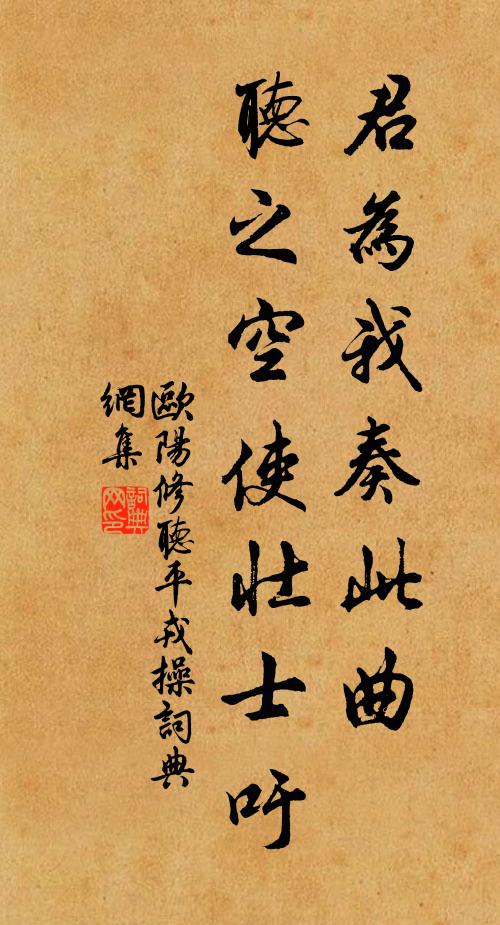 君為我奏此曲
聽之空使壯士吁
歐陽修聽平戎操詞典
網集
詞典
网印